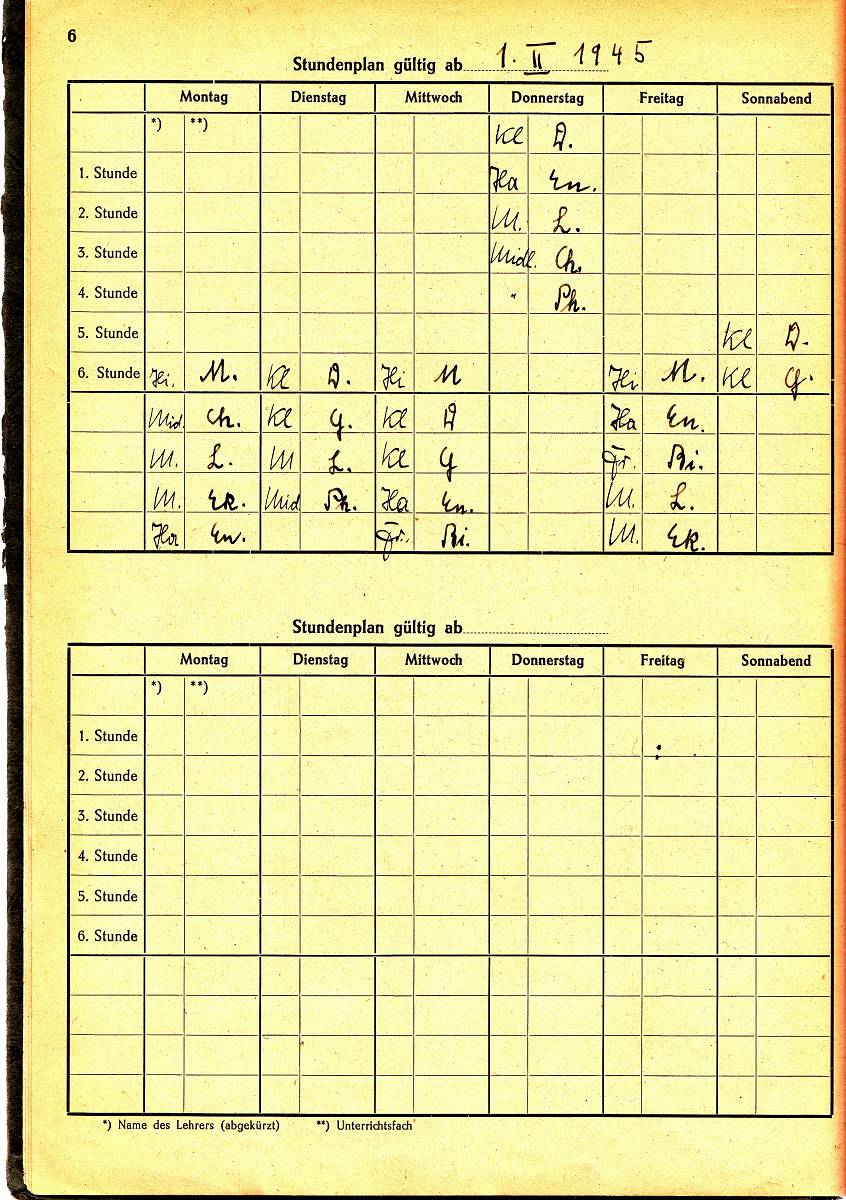 6
Stundenplan gültig ab 1. II 1945
Montag Dienstag Mittwoch Donnerstag Freitag Sonnabend
*) **) Kl D.
1. Stunde Ha En.
2. Stunde M. L.
3. Stunde Midl. Ch.
4. Stunde " Ph.
5. Stunde Kl D.
6. Stunde Hi. M. Kl D. Hi M Hi M. Kl G.
Mid. Ch. Kl G. Kl D Ha En.
M. L. M L. Kl G Fr. Bi.
M. Ek. Mid Ph. Ha En. M. L.
Ha En. Fr. Bi. M. Ek.
Stundenplan gültig ab
Montag Dienstag Mittwoch Donnerstag Freitag Sonnabend
*) **)
1. Stunde
2. Stunde
3. Stunde
4. Stunde
5. Stunde
6. Stunde
*) Name des Lehrers (abgekürzt) **) Unterrichtsfach